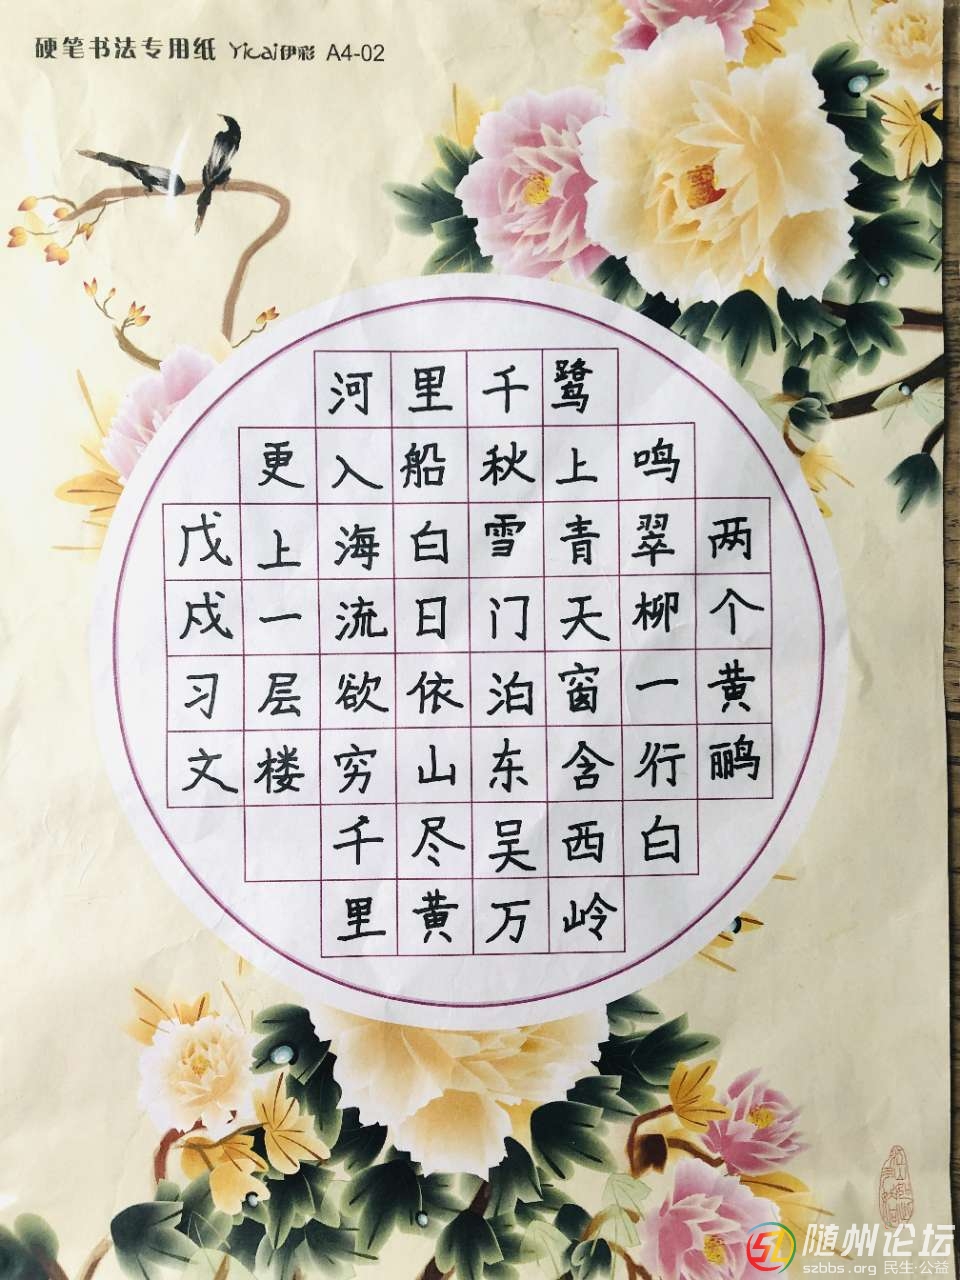 硬笔书法专用纸 Yicai伊彩 A4-02
两个黄鹂
鸣翠柳一行白
鹭上青天窗含西岭
千秋雪门泊东吴万
里船白日依山尽黄
河入海流欲穷千里
更上一层楼
戊戍习文
随州论坛
szbbs.org 民生·公益